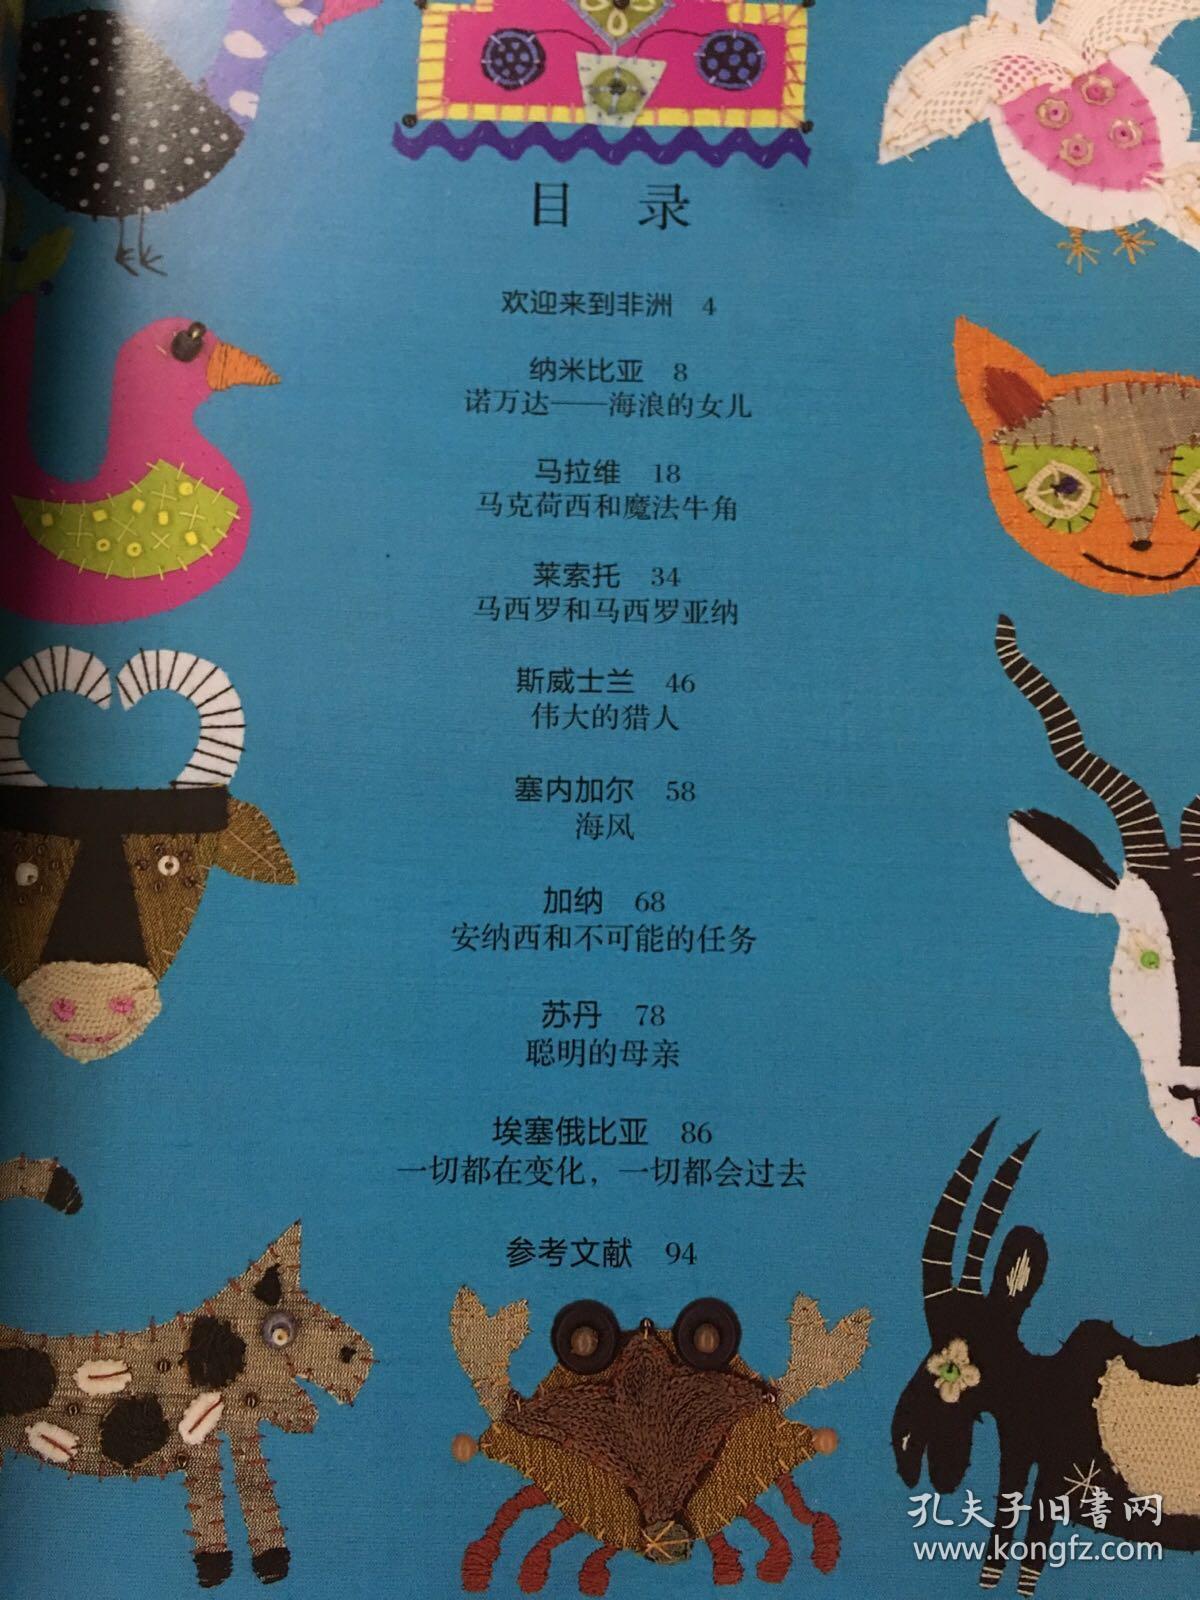 目 录
欢迎来到非洲 4
纳米比亚 8
诺万达——海浪的女儿
马拉维 18
马克荷西和魔法牛角
莱索托 34
马西罗和马西罗亚纳
斯威士兰 46
伟大的猎人
塞内加尔 58
海风
加纳 68
安纳西和不可能的任务
苏丹 78
聪明的母亲
埃塞俄比亚 86
一切都在变化，一切都会过去
参考文献 94
孔夫子旧书网
www.kongfz.com